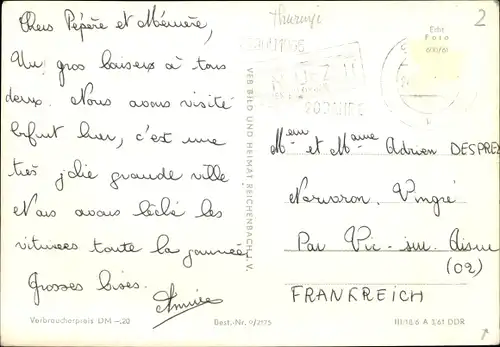 Chers Pépère et Mémère,
Un gros baiser à tous
deux. Nous avons visité
Erfurt hier, c'est une
très jolie grande ville
Nous avons léché les
vitrines toute la journée
Grosses bises.
Annie
Verbraucherpreis DM -,20
Best.-Nr. 9/2175
VEB BILD UND HEIMAT REICHENBACH i. V.
2
Echt
Foto
Meur et Mame Adrien DESPREZ
Vingré
Par Vic-sur-Aisne
(02)
FRANKREICH
III/18/6 A 1/61 DDR